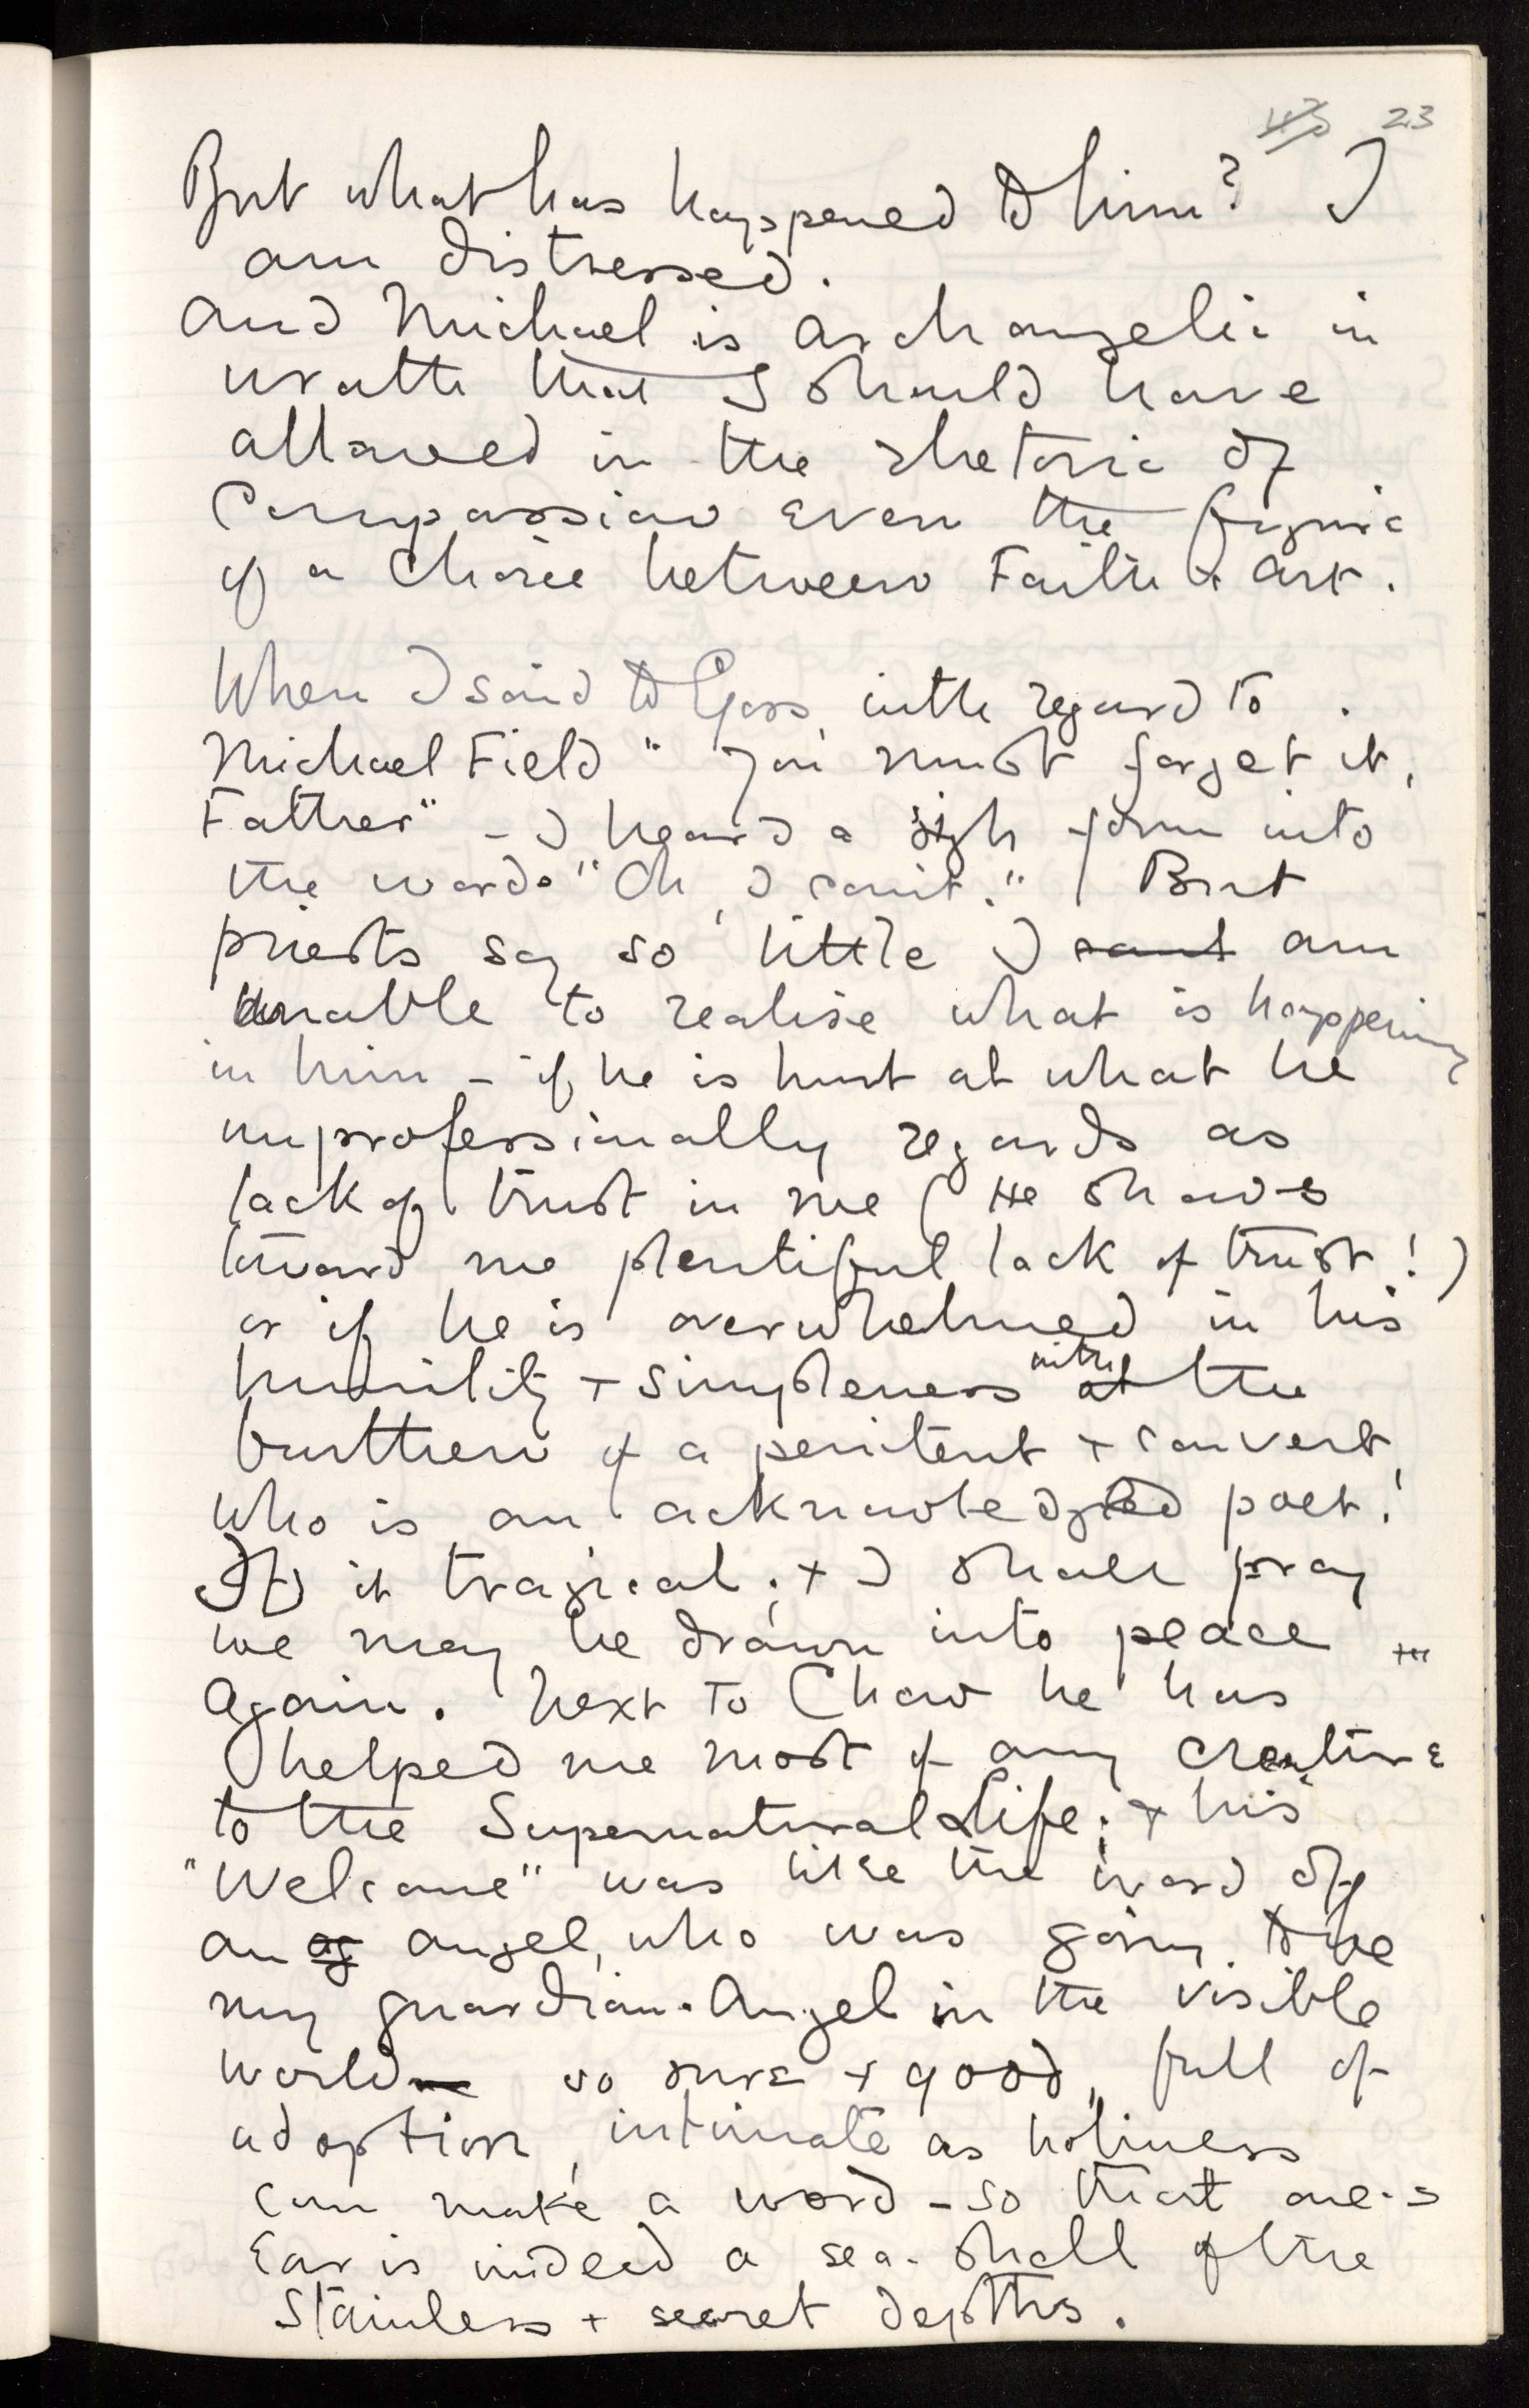 23
But what has happened to him? I
am distressed.
And Michael is archangelic in
wrath that I should have
allowed in the rhetoric of
Compassion even the figure
of a Choice between Faith & Art.
When I said to Goss, with regard to
Michael Field "You must forget it,
Father" – I heard a sigh form into
the words "Oh, I can't." / But
priests say so little I cant am
unable to realise what is happening
in him – if he is hurt at what he
unprofessionally regards as
lack of trust in me (He shows
toward me plentiful lack of trust!)
or if he is overwhelmed in his
humility + simpleness at with the
burthen of a penitent + convert
who is an acknowledged poet!
It is tragical; + I shall pray
we may be drawn into peace
again. Next to Chow he has
helped me most of any creature
to the Supernatural Life; + his
"Welcome" was like the word of
an ag angel, who was going to be
my guardian-Angel in the visible
world so sure + good, full of
adoption, intimate as holiness
can make a word – so that one's
Ear is indeed a sea-shell of the
Stainless + secret depths.